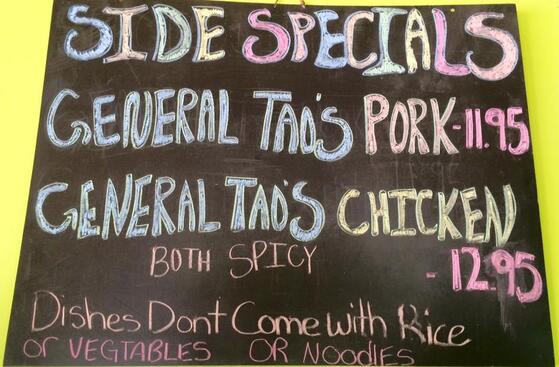 SIDE SPECIALS
GENERAL TAO'S PORK-11.95
GENERAL TAO'S CHICKEN
BOTH SPICY
- 12.95
Dishes Dont Come with Rice
or VEGTABLES OR NOODlES